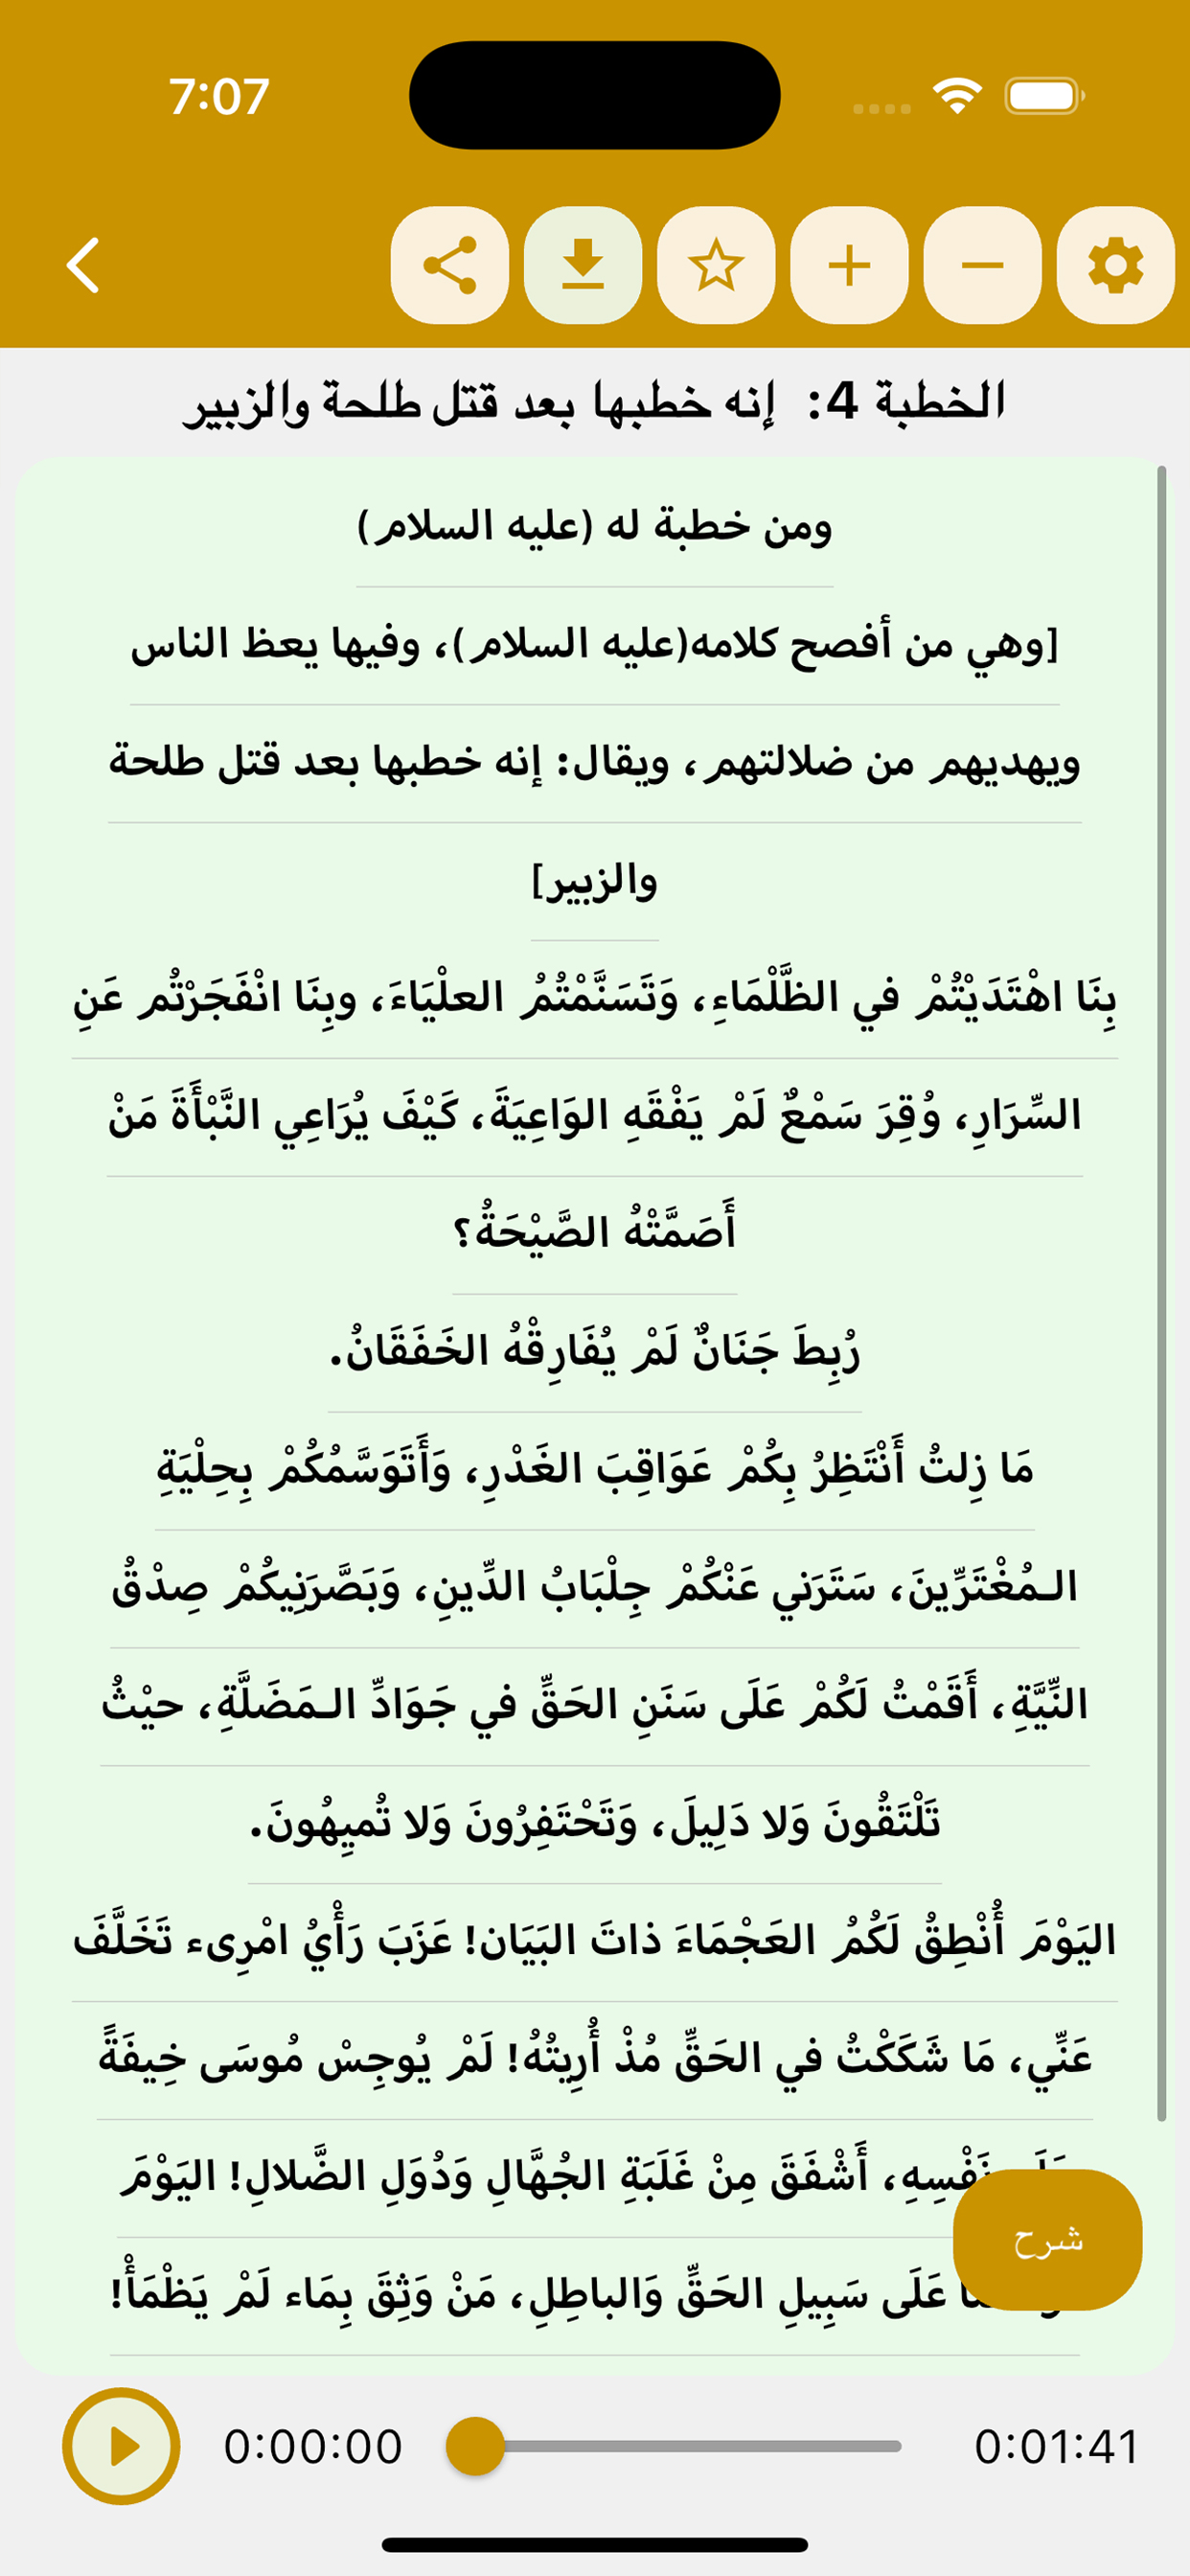 7:07
الخطبة 4: إنه خطبها بعد قتل طلحة والزبير
ومن خطبة له (عليه السلام)
[وهي من أفصح كلامه(عليه السلام)، وفيها يعظ الناس
ويهديهم من ضلالتهم، ويقال: إنه خطبها بعد قتل طلحة
والزبير]
بِنَا اهْتَدَيْتُمْ في الظَّلْمَاءِ، وَتَسَنَّمْتُمُ العلْيَاءَ، وبِنَا انْفَجَرْتُم عَنِ
السِّرَارِ، وُقِرَ سَمْعٌ لَمْ يَفْقَهِ الوَاعِيَةَ، كَيْفَ يُرَاعِي النَّبْأَةَ مَنْ
أَصَمَّتْهُ الصَّيْحَةُ؟
رُبِطَ جَنَانٌ لَمْ يُفَارِقْهُ الخَفَقَانُ.
مَا زِلتُ أَنْتَظِرُ بِكُمْ عَوَاقِبَ الغَدْرِ، وَأَتَوَسَّمُكُمْ بِحِلْيَةِ
الـمُغْتَرِّينَ، سَتَرَني عَنْكُمْ جِلْبَابُ الدِّينِ، وَبَصَّرَنِيكُمْ صِدْقُ
النِّيَّةِ، أَقَمْتُ لَكُمْ عَلَى سَنَنِ الحَقِّ في جَوَادِّ الـمَضَلَّةِ، حيْثُ
تَلْتَقُونَ وَلا دَلِيلَ، وَتَحْتَفِرُونَ وَلا تُميِهُونَ.
اليَوْمَ أُنْطِقُ لَكُمُ العَجْمَاءَ ذاتَ البَيَان! عَزَبَ رَأْيُ امْرِىء تَخَلَّفَ
عَنِّي، مَا شَكَكْتُ في الحَقِّ مُذْ أُرِيتُهُ! لَمْ يُوجِسْ مُوسَى خِيفَةً
نَفْسِهِ، أَشْفَقَ مِنْ غَلَبَةِ الجُهَّالِ وَدُوَلِ الضَّلالِ! اليَوْمَ
عَلَى سَبِيلِ الحَقِّ وَالباطِلِ، مَنْ وَثِقَ بِمَاء لَمْ يَظْمَأْ!
شرح
0:00:00
0:01:41